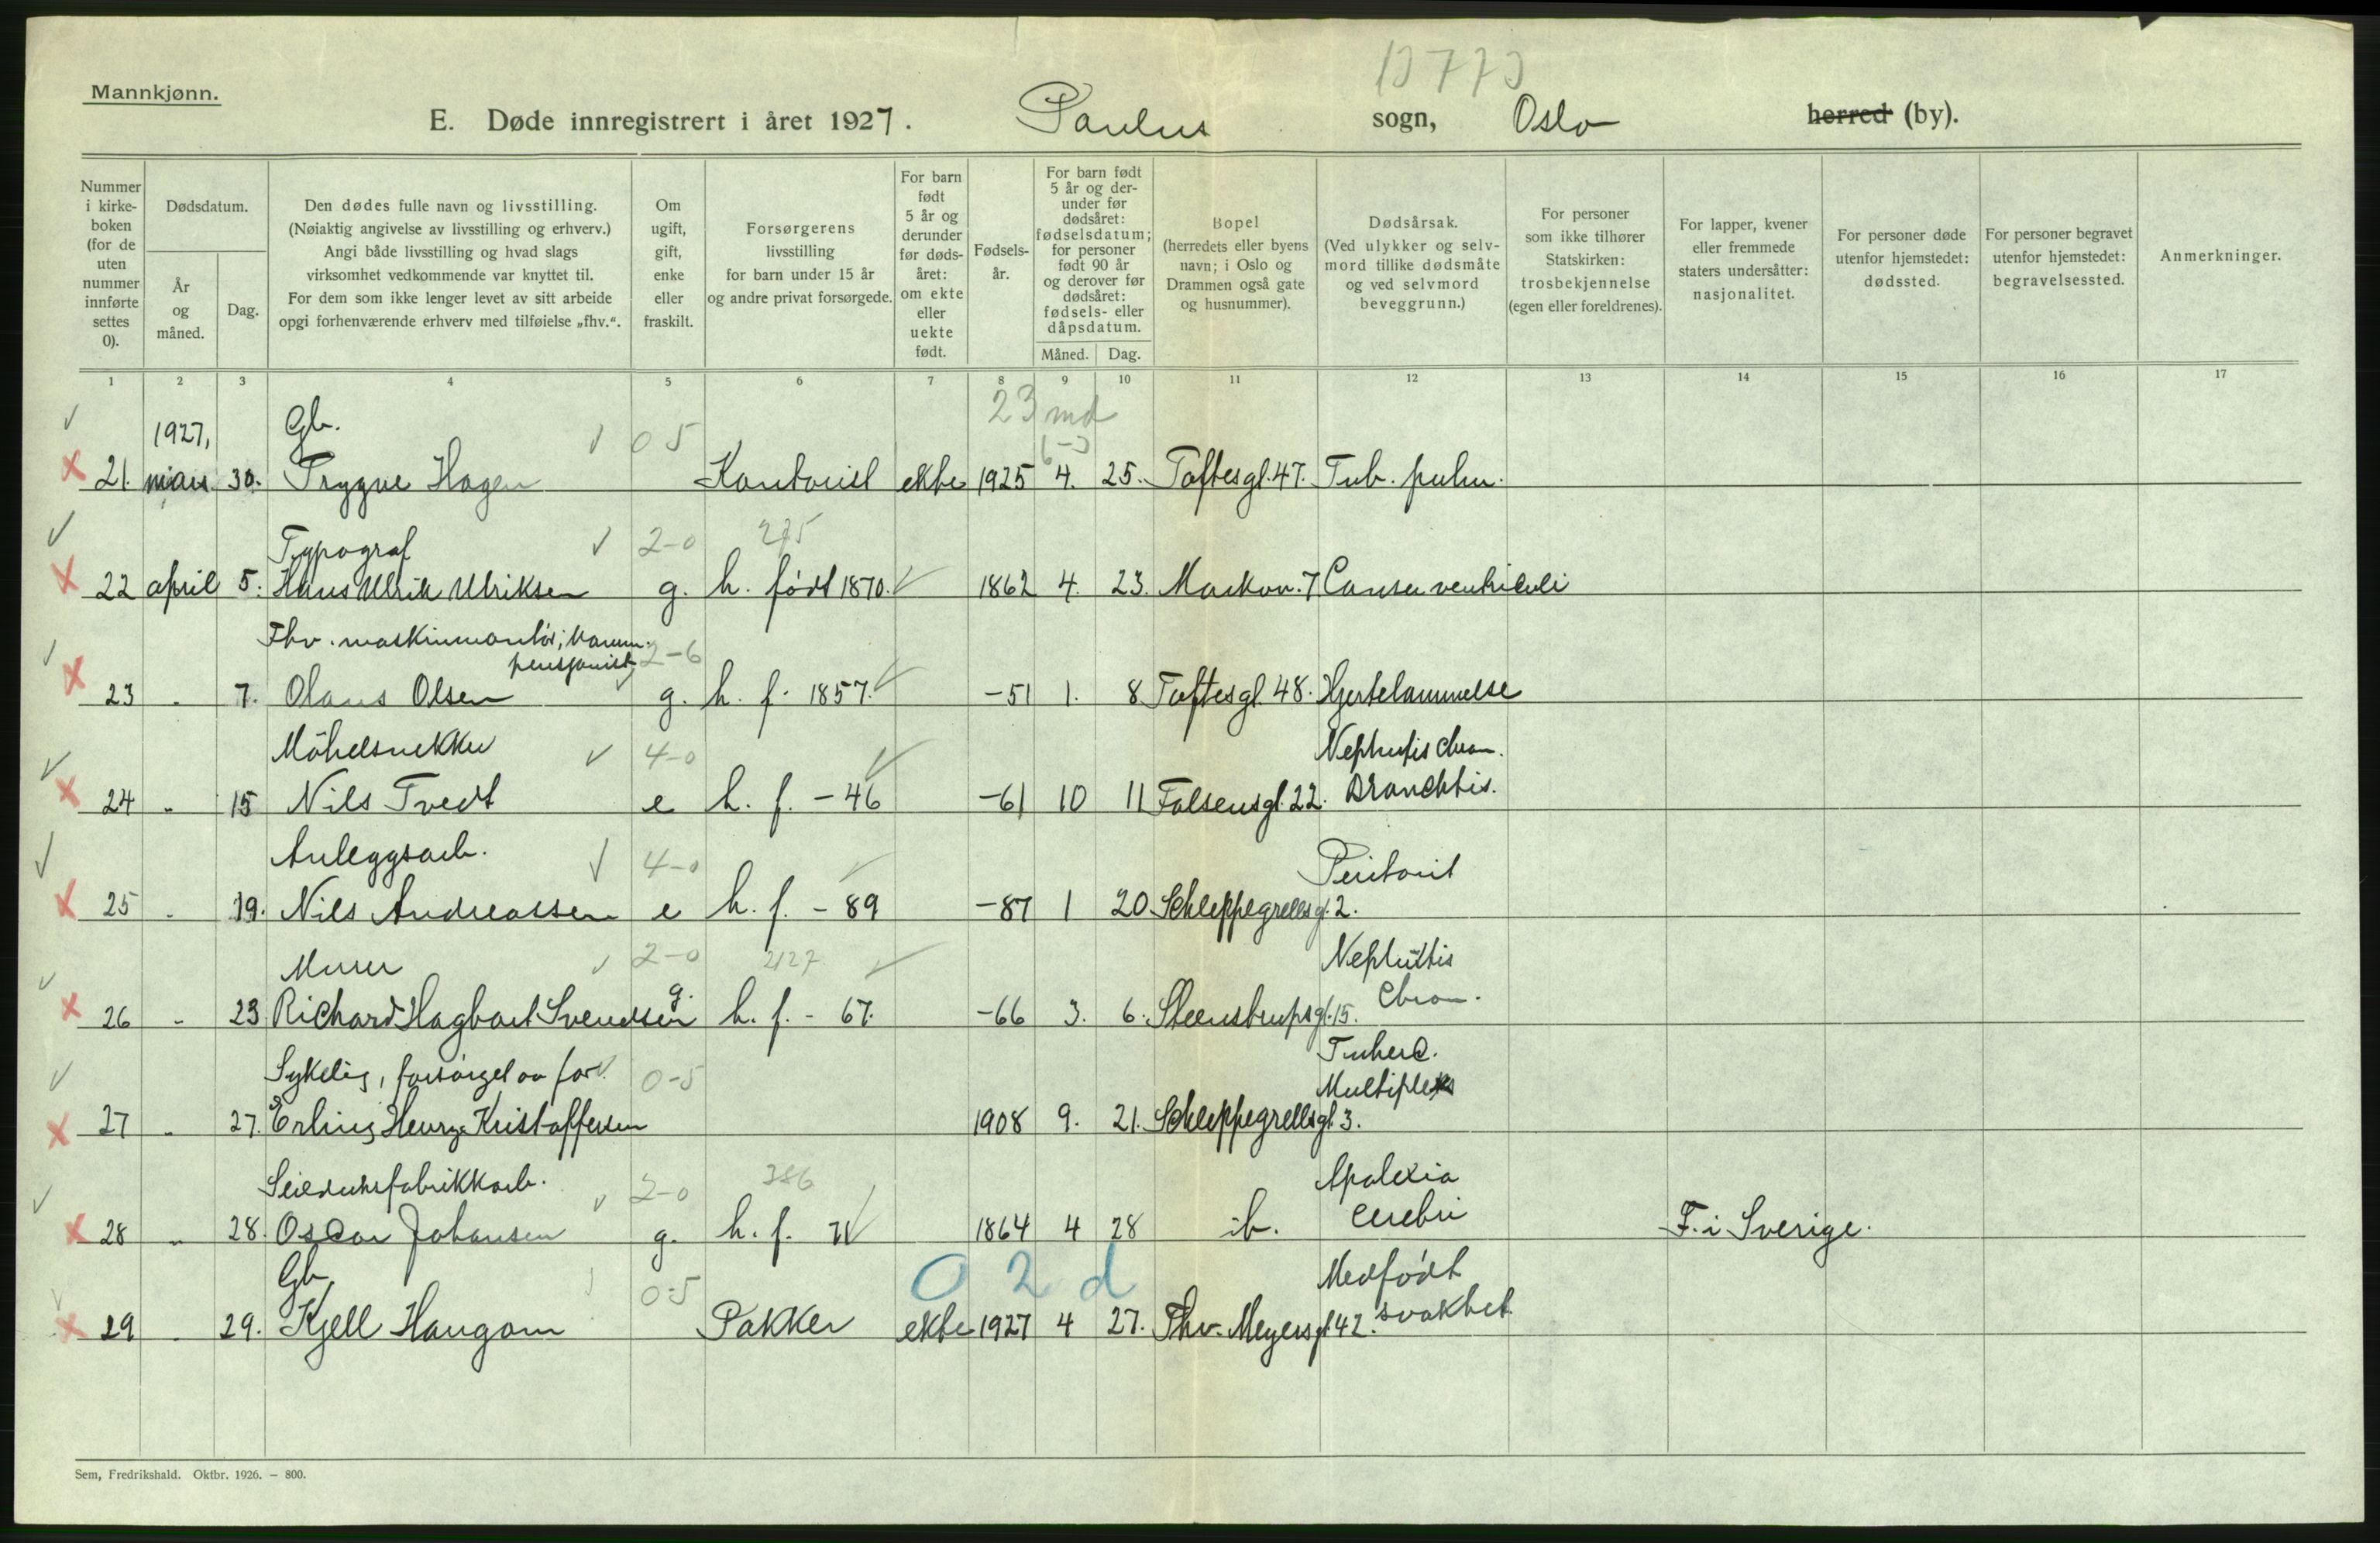 Mannkjønn.
13773
E. Døde innregistrert i året 1927. Paulus sogn, Oslo herred (by).
Nummer i kirke- boken (for de uten nummer innførte settes 0).
Dødsdatum.
År og måned.
Dag.
Den dødes fulle navn og livsstilling.
(Nøiaktig angivelse av livsstilling og erhverv.)
Angi både livsstilling og hvad slags
virksomhet vedkommende var knyttet til.
For dem som ikke lenger levet av sitt arbeide
opgi forhenværende erhverv med tilføielse „fhv.“.
Om ugift, gift, enke eller fraskilt.
Forsørgerens
livsstilling
for barn under 15 år
og andre privat forsørgede.
For barn født 5 år og derunder før døds- året: om ekte eller uekte født.
Fødsels- år.
For barn født 5 år og der- under før dødsåret: fødselsdatum; for personer født 90 år og derover før dødsåret: fødsels- eller dåpsdatum.
Måned. Dag.
Bopel
(herredets eller byens
navn; i Oslo og
Drammen også gate
og husnummer).
Dødsårsak.
(Ved ulykker og selv-
mord tillike dødsmåte
og ved selvmord
beveggrunn.)
For personer
som ikke tilhører
Statskirken:
trosbekjennelse
(egen eller foreldrenes).
For lapper, kvener
eller fremmede
staters undersåtter:
nasjonalitet.
For personer døde
utenfor hjemstedet:
dødssted.
For personer begravet
utenfor hjemstedet:
begravelsessted.
Anmerkninger.
1 2 3 4 5 6 7 8 9 10 11 12 13 14 15 16 17
23 md
1927, Gb. 0 5
21. mars 30. Trygve Hagen Kontorist ekte 1925 4. 25. Toftesgt. 47. Tub. pulm.
Typograf 2-0 275
22 april 5. Hans Ulrik Ulriksen g. h. født 1870. 1862 4. 23. Markvn. 7 Cancer ventriculi
Fhv. maskinmontør; komm.
pensjonist 2-6
23 - 7. Olaus Olsen g. h. f. 1857. -51 1. 8 Toftesgt. 48. Hjertelammelse
Møbelsnekker 4-0 Nephritis chron.
24 - 15 Nils Tvedt e h. f. - 46 -61 10 11 Falsensgt. 22. Bronchtis.
Anleggsarb. 4-0 Peritonit
25 - 19. Nils Andreassen e h. f. - 89 -87 1 20. Schleppegrellsgt. 2.
Murer 2-0 2127 Nephritis
26 - 23 Richard Hagbart Svendsen g. h. f. - 67. -66 3. 6. Steenstrupsgt. 15. Chron.
Sykelig, forsørget av for. 0-5 Tuberc.
Multiplex
27 - 27. Erling Henry Kristoffersen 1908 9. 21. Schleppegrellsgt. 3.
Seilduksfabrikkarb. 2-0 386 Apolexia
28 - 28. Oscar Johansen g. h. f. 71 1864 4 28 ib. cerebri F. i Sverige.
Gb. 0-5 0 2 d Medfødt
29 - 29. Kjell Haugom Pakker ekte 1927 4 27. Thv. Meyersgt 42. svakhet
Sem, Fredrikshald. Oktbr. 1926. – 800.